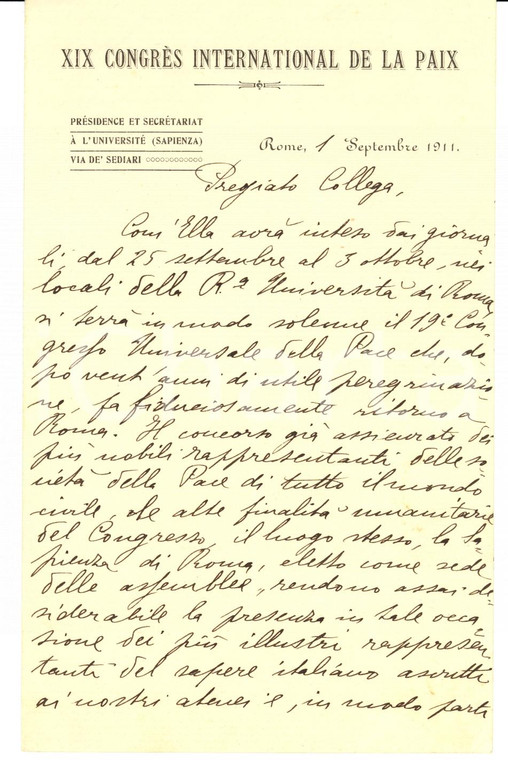 XIX CONGRÈS INTERNATIONAL DE LA PAIX
PRÉSIDENCE ET SECRÉTARIAT
À L'UNIVERSITÉ (SAPIENZA)
VIA DE' SEDIARI
Rome, 1 Septembre 1911.
Pregiato Collega,
Com' Ella avrà inteso dai giorna
li dal 25 settembre al 3 ottobre, nei
locali della R.a Università di Roma
si terrà in modo solenne il 19° Con
gresso Universale della Pace che, do
po vent'anni di utile peregrinazio
ne, fa fiduciosamente ritorno a
Roma. Il concorso già assicurato dei
più nobili rappresentanti delle so
cietà della Pace di tutto il mondo
civile, le alte finalità umanitarie
del Congresso, il luogo stesso, la Sa
pienza di Roma, eletto come sede
delle assemblee, rendono assai de
siderabile la presenza in tale occa
sione dei più illustri rappresen
tanti del sapere italiano ascritti
ai nostri atenei e, in modo parti